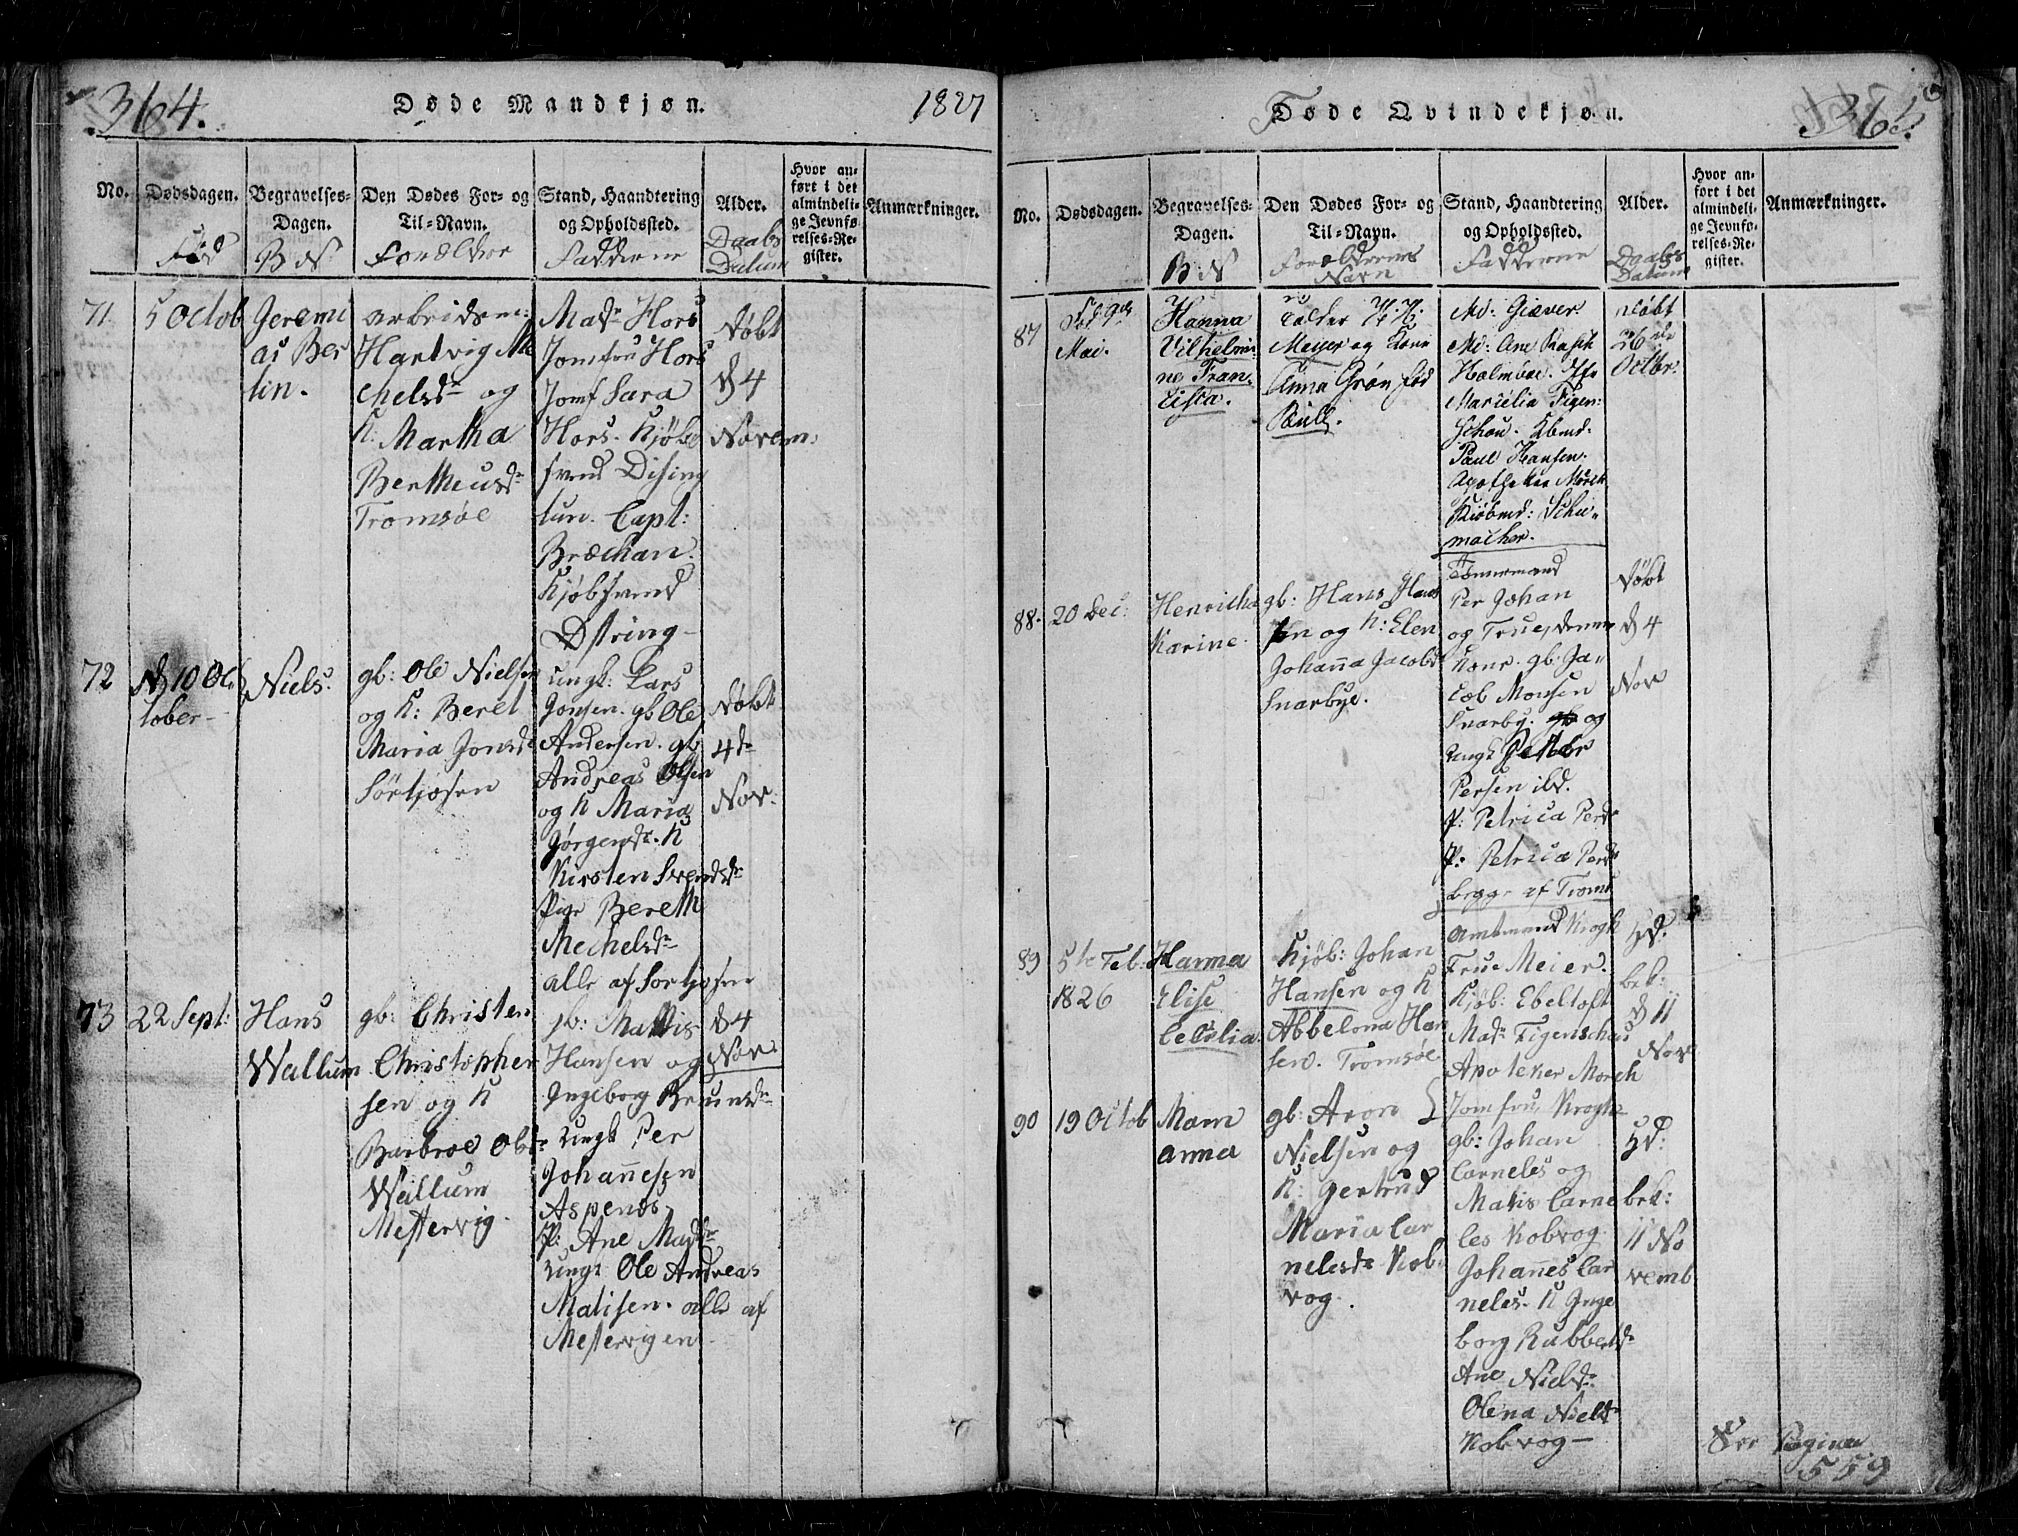 364.
Døde Mandkjøn.
1827
No.
Dødsdagen.
Begravelses-
Dagen.
Den Dødes For- og
Til-Navn.
Stand, Haandtering
og Opholdssted.
Alder.
Hvor an-
ført i det
almindeli-
ge Jevnfø-
relses-Re-
gister.
Anmærkninger.
Fød
B N
Forældre
Fadderne
Daabs
Datum
71
5 Octob
Geremi
as Ber
tin.
arbeidsm:
Hartvig Mi
chelsdr og
K: Martha
Bertheusdr
Tromsøe
Madr Hors
Jomfru Hors
Jomf Sara
Hors. Kjøb
svend Dising
tun. Capt:
Bræchan.
Kjøbsvend
Dstring-
døbt
d 4
Novem:
72
d 10 Oc
tober-
Niels.
gb: Ole Nielsen
og K: Beret
Maria Jonsdr
Sørtjosen
Ungk: Lars
Jonsen. gb Ole
Andersen. gb
Andreas Olsen
og K Maria
Jørgensdr. K
Kirsten Svendsdr
Pige Bereth
Mechelsdr
alle af Sortjosen
døbt
4de
Nov.
73
22 Sept:
Hans
Wallum
gb: Christen
Christopher
sen og K
Barbroe Olsdr
Wallum
Mestervig.
gb: Mattis
Hansen og
Ingeborg Brunsdr
Ungk Per
Johannesen
Aspenæs.
P: Ane Madsdr
Ungk Ole Andreas
Matisen. alle af
Mestervigen
d 4
Nov.
Døde Qvindekjøn.
365.
No.
Dødsdagen.
Begravelses-
Dagen.
Den Dødes For- og
Til-Navn.
Stand, Haandtering
og Opholdssted.
Alder.
Hvor an-
ført i det
almindeli-
ge Jevnfø-
relses-Re-
gister.
Anmærkninger.
B N
Forældrenes
Navn
Fadderne
Daabs
Datum
87
Fød 9de
Mai.
Hanna
Vilhelmi-
ne Fran-
ciska.
Tolder H: H:
Meyer og Kone
Anna Grøn fød
Paull.
Md: Giæver.
Md: Ane Rasch
Holmboe. Jfr
Marielia Figen:
Schou. Kbmd:
Paul Hansen.
Apotheker Morch
Kiøbmd: Schu-
macher.
døbt
26de
Octbr.
88.
20 Dec:
Henricha
Karine.
gb: Hans Hans
sen og K: Elen
Johanna Jacobsdr
Snarbye.
Tømmermand
Per Johan
og Frue, denne
Kone. gb: Ja-
cob Monsen
Snarby. og
Ungk Petter
Persen ibd.
P: Petrica Persdr
P: Petrica Persdr
begge af Troms
døbt
d 4
Nov
89
5te Feb.
1826
Hanna
Elise
Cecelia.
Kjøb: Johan
Hansen og K
Abbelona Han
sen. Tromsøe
Amtmand Krogh
Frue Meier.
Kjøb: Ebeltoft
Madr Figenschau
Apoteker Morch
Jomfru Krogh
Hd.
bek:
d 11
Nov
90
19 Octob
Marn
anna
gb: Aron
Nielsen og
K: Gertrud
Maria Car
nelesdr Kob
vog.
gb: Johan
Carneles og
Matis Carne
les Kobvog
Johannes Car
neles. K Inge
borg Rubbertsdr
Ane Nielsdr
Olena Nielsdr
Kobvog-
Hd:
bek:
11 No
vemb
See Pagina
559